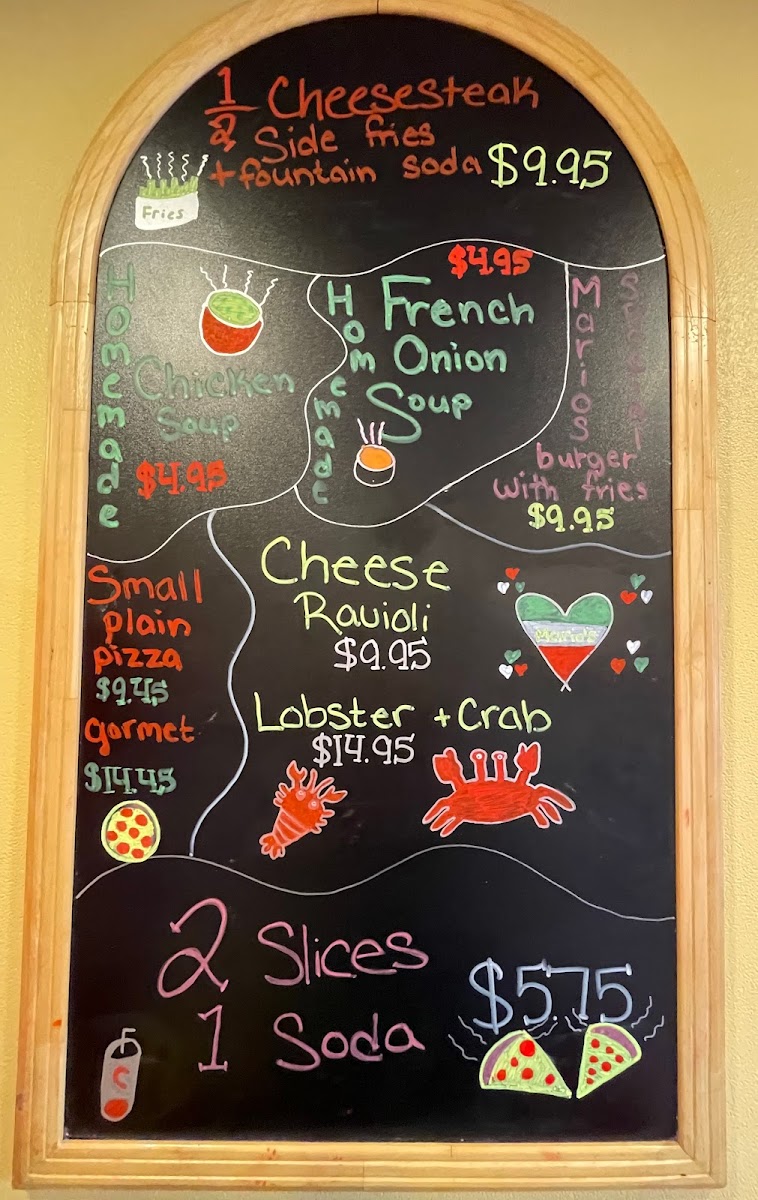 1/2 Cheesesteak
Side fries
+ fountain soda $9.95
Fries
Homemade
Chicken
Soup
$4.95
$4.95
Homemade
French
Onion
Soup
Marios
Special
burger
with fries
$9.95
Small
plain
pizza
$9.45
gormet
$14.45
Cheese
Ravioli
$9.95
Mario's
Lobster + Crab
$14.95
2 Slices
1 Soda
$5.75
C